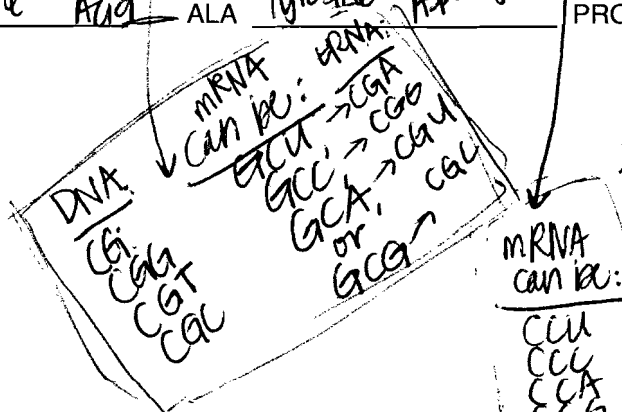 Aug ALA PRO
DNA:
CG
CGG
CGT
CGC
mRNA
can be:
GCU →
GCC →
GCA →
or,
GCG →
tRNA:
CGA
CGG
CGU
CGC
mRNA
can be:
CCU
CCC
CCA